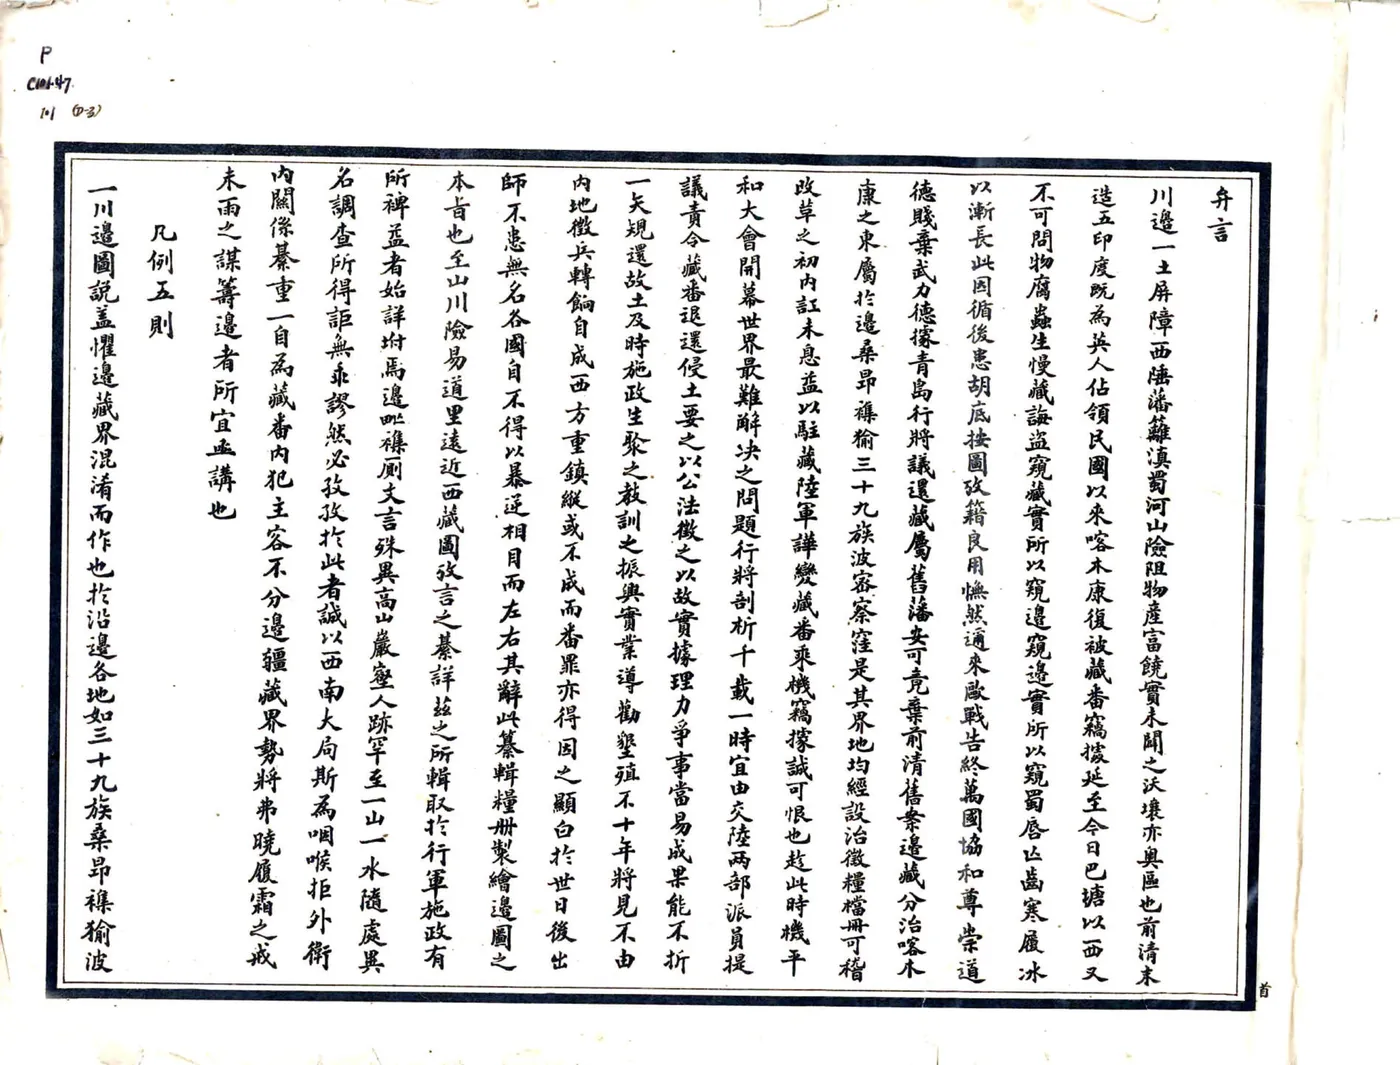 P
C101.47
101 (D-3)
弁言
川邊一土屏障西陲藩籬滇蜀河山險阻物産富饒實未闢之沃壤亦奥區也前清末
造五印度既為英人佔領民國以來喀木康復被藏番竊據延至今日巴塘以西又
不可問物腐蟲生慢藏誨盗窺藏實所以窺邊窺邊實所以窺蜀唇亡齒寒履冰
以漸長此因循後患胡底按圖攷籍良用憮然邇來歐戰告終萬國協和尊崇道
德賤棄武力德據青島行將議還藏屬舊藩安可竟棄前清舊案邊藏分治喀木
康之東屬於邊桑昂襍猀三十九族波密察窪是其界地均經設治徵糧檔冊可稽
改革之初内訌未息益以駐藏陸軍譁變藏番乘機竊據誠可恨也趁此時機平
和大會開幕世界最難解决之問題行將剖析千載一時宜由交陸两部派員提
議責令藏番退還侵土要之以公法徵之以故實據理力爭事當易成果能不折
一矢規還故土及時施政生聚之教訓之振興實業導勸墾殖不十年將見不由
内地徵兵轉餉自成西方重鎮縱或不成而番罪亦得因之顯白於世日後出
師不患無名各國自不得以暴逆相目而左右其辭此纂輯糧册製繪邊圖之
本旨也至山川險易道里遠近西藏圖攷言之綦詳兹之所輯取於行軍施政有
所裨益者始詳坿焉邊毗襍厠支言殊異高山巖壑人跡罕至一山一水隨處異
名調查所得詎無乖謬然必孜孜於此者誠以西南大局斯為咽喉拒外衛
内關係綦重一自為藏番内犯主客不分邊疆藏界勢將弗曉履霜之戒
未雨之謀籌邊者所宜亟講也
凡例五則
一川邊圖説盖懼邊藏界混淆而作也於沿邊各地如三十九族桑昂襍猀波
首